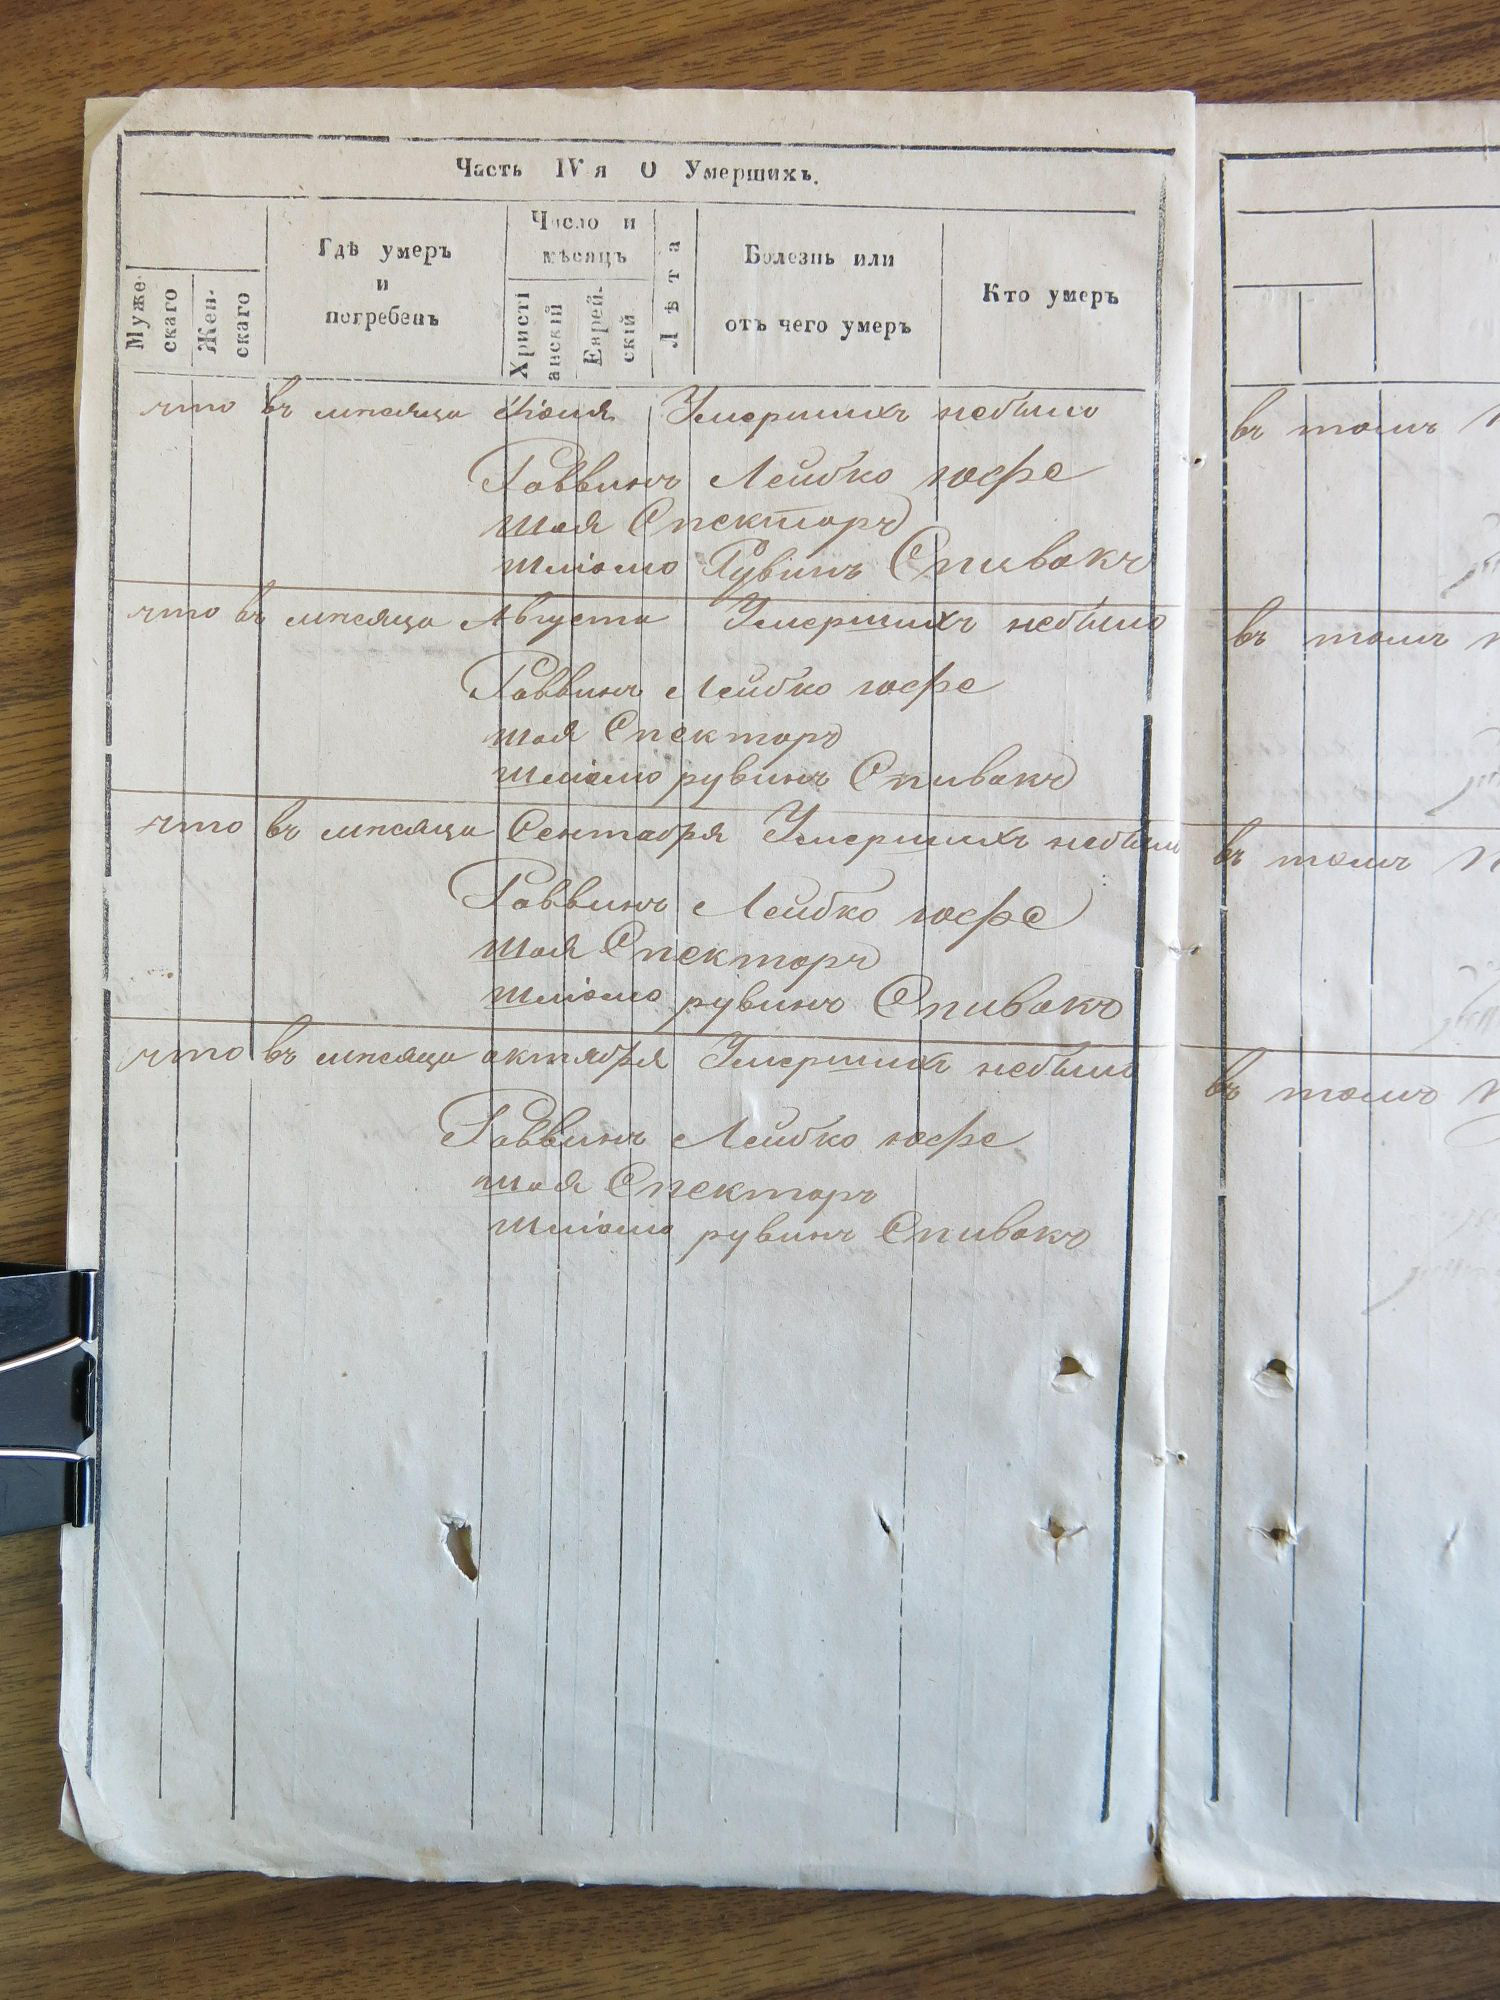 Часть IV я О Умершихъ.
Мужескаго
Женскаго
Гдѣ умеръ
и
погребенъ
Число и
мѣсяцъ
Христіанскій
Еврейскій
Лѣта
Болезнь или
отъ чего умеръ
Кто умеръ
что въ мѣсяца Іюля Умершихъ небыло
Раввинъ Лейбко Юфе
Шая Спекторъ
Шліомо Рувинъ Спивакъ
что въ мѣсяца Августа Умершихъ небыло
Раввинъ Лейбко Юфе
Шая Спекторъ
Шліомо рувинъ Спивакъ
что въ мѣсяца Сентабря Умершихъ небыло
Раввинъ Лейбко Юфе
Шая Спекторъ
Шліомо рувинъ Спивакъ
что въ мѣсяца октября Умершихъ небыло
Раввинъ Лейбко Юфе
Шая Спекторъ
Шліомо рувинъ Спивакъ
въ томъ
въ томъ
въ томъ
въ томъ